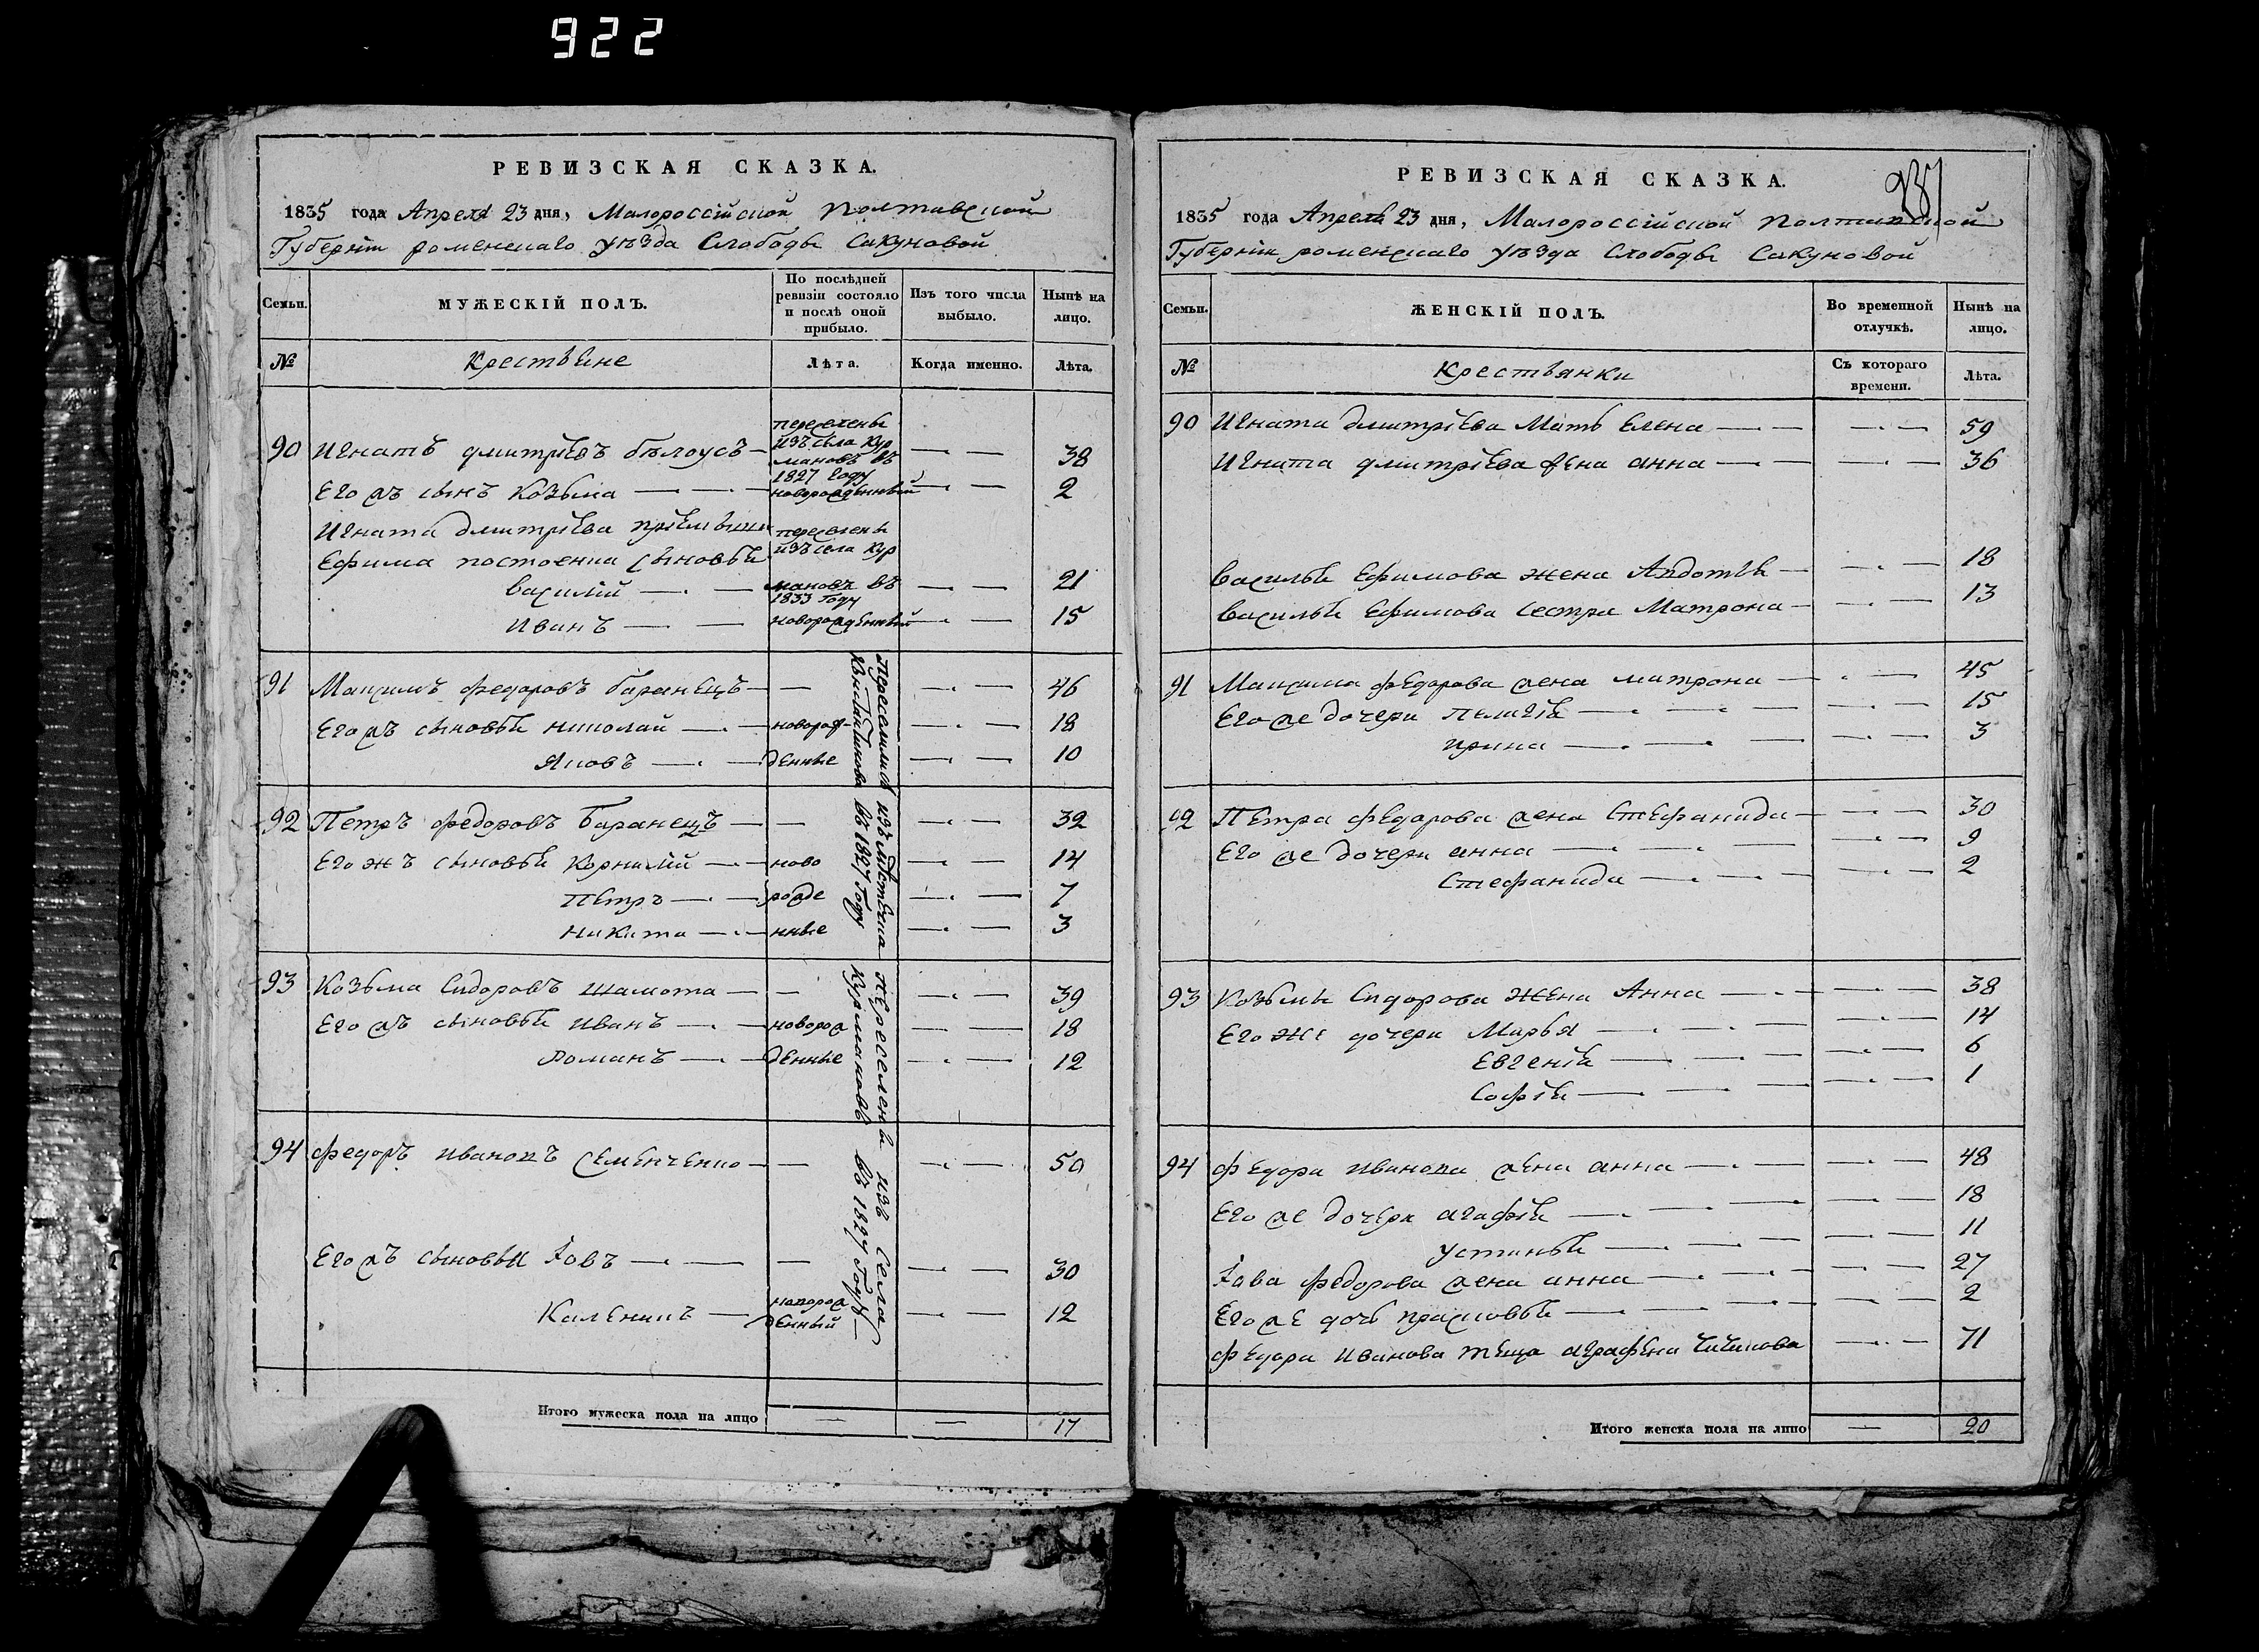 922
РЕВИЗСКАЯ СКАЗКА.
1835 года Апреля 23 дня, Малороссійской Полтавской
Губерніи роменскаго уѣзда Слободы Сакуновой
Семьи. МУЖЕСКІЙ ПОЛЪ. По послѣдней ревизіи состояло и послѣ оной прибыло. Изъ того числа выбыло. Нынѣ на лицо.
№ Крестьяне Лѣта. Когда именно. Лѣта.
90 Игнатъ дмитріевъ бѣлоусъ — переселены изъ села Курмановъ въ 1827 году — 38
Его жъ сынъ Козьма — новорожденный — 2
Игната дмитріева
Ефима сыновья переселены изъ села Кур
василій — мановъ въ 1833 году — 21
Иванъ — новорожденный — 15
91 Максимъ федоровъ баранецъ — — — 46
Его жъ сыновья николай — новорож- — 18
Яковъ — денные — 10
Переселились изъ местечка
въ 1827 году
92 Петръ федоровъ Баранецъ — — — 32
Его жъ сыновья Корнилій — ново — 14
Петръ — рожде — 7
никита — нные — 3
93 Козьма Сидоровъ шамота — — — 39
Его жъ сыновья иванъ — новорож — 18
Романъ — денные — 12
переселены изъ села
Курмановъ въ 1827 году
94 федоръ ивановъ семенченко — — — 50
Его жъ сыновья Іовъ — — — 30
Каленикъ — новорожденный — 12
Итого мужеска пола на лицо — — 17
РЕВИЗСКАЯ СКАЗКА.
1835 года Апреля 23 дня, Малороссійской Полтавской
Губерніи роменскаго уѣзда Слободы Сакуновой
Семьи. ЖЕНСКІЙ ПОЛЪ. Во временной отлучкѣ. Нынѣ на лицо.
№ Крестьянки Съ котораго времени. Лѣта.
90 Игната дмитріева Мать Елена — — 59
Игната дмитріева жена анна — — 36
василья Ефимова жена Авдотья — — 18
василья Ефимова сестра Матрона — — 13
91 Максима федорова жена матрона — — 45
Его же дочери Пелагія — — 15
ирина — — 3
92 Петра федорова жена Стефанида — — 30
Его же дочери анна — — 9
Стефанида — — 2
93 Козьмы Сидорова жена Анна — — 38
Его же дочери Марья — — 14
Евгенія — — 6
Софія — — 1
94 федора иванова жена анна — — 48
Его же дочери агафія — — 18
устинья — — 11
Іова федорова жена анна — — 27
Его же дочь прасковья — — 2
федора иванова теща аграфена — 71
Итого женска пола на лицо — 20